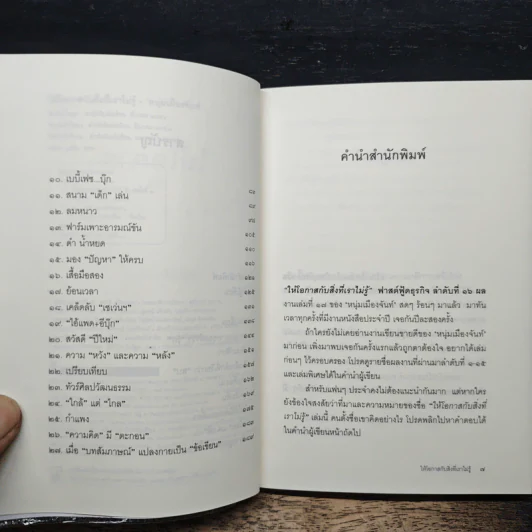 ๑๐. เบบี้เฟซ...บุ๊ก
๑๑. สนาม "เด็ก" เล่น
๑๒. ลมหนาว
๑๓. ฟาร์มเพาะอารมณ์ขัน
๑๔. คำ น้ำหยด
๑๕. มอง "ปัญหา" ให้ครบ
๑๖. เสื้อมือสอง
๑๗. ย้อนเวลา
๑๘. เคล็ดลับ "เซเว่นฯ"
๑๙. "ไอ้แพด+อีบุ๊ก"
๒๐. สวัสดี "ปีใหม่"
๒๑. ความ "หวัง" และความ "หลัง"
๒๒. เปรียบเทียบ
๒๓. ทัวร์ศิลปวัฒนธรรม
๒๔. "ใกล้" แต่ "ไกล"
๒๕. กำแพง
๒๖. "ความคิด" มี "ตะกอน"
๒๗. เมื่อ "บทสัมภาษณ์" แปลงกายเป็น "ข้อเขียน"
คำนำสำนักพิมพ์
"ให้โอกาสกับสิ่งที่เราไม่รู้" ฟาสต์ฟู้ดธุรกิจ ลำดับที่ ๑๖ ผล
งานเล่มที่ ๑๗ ของ 'หนุ่มเมืองจันท์' สดๆ ร้อนๆ มาแล้ว มาทัน
เวลาทุกครั้งที่มีงานหนังสือประจำปี เจอกันปีละสองครั้ง
ถ้าใครยังไม่เคยอ่านงานเขียนขายดีของ 'หนุ่มเมืองจันท์'
มาก่อน เพิ่งมาพบเจอกันครั้งแรกแล้วถูกตาต้องใจ อยากได้เล่ม
ก่อนๆ ไว้ครอบครอง โปรดดูรายชื่อผลงานที่ผ่านมาลำดับที่ ๑-๑๕
และเล่มพิเศษได้ในคำนำผู้เขียน
สำหรับแฟนๆ ประจำคงไม่ต้องแนะนำกันมาก แต่หากใคร
ยังข้องใจสงสัยว่าที่มาและความหมายของชื่อ "ให้โอกาสกับสิ่งที่
เราไม่รู้" เล่มนี้ คนตั้งชื่อเขาคิดอย่างไร โปรดพลิกไปหาคำตอบได้
ในคำนำผู้เขียนหน้าถัดไป
ให้โอกาสกับสิ่งที่เราไม่รู้